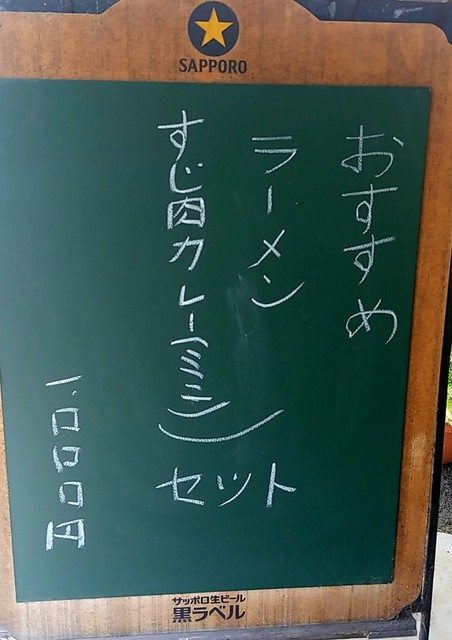 SAPPORO
おすすめ
ラーメン
すじ肉カレー(ミニ)
セット
1.000円
サッポロ生ビール
黒ラベル